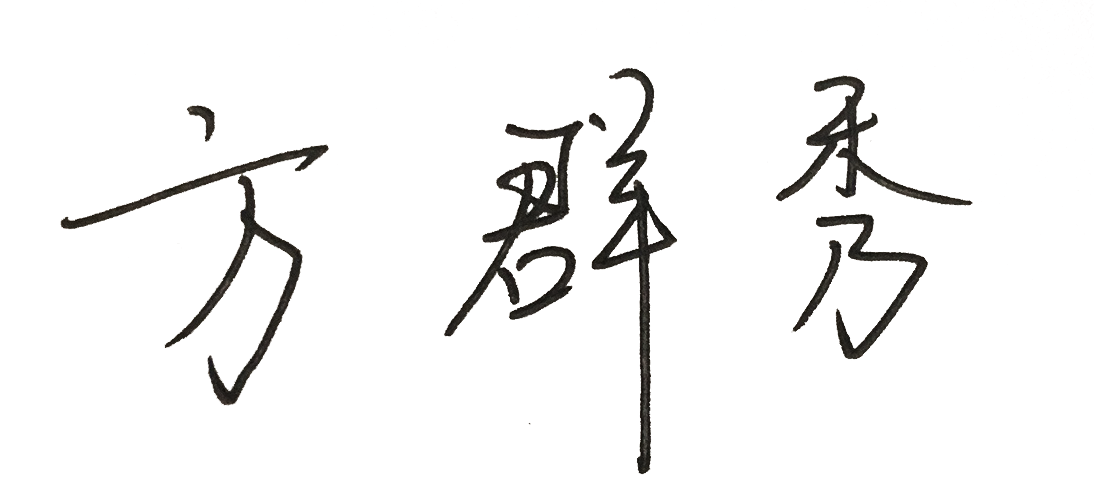 方群秀